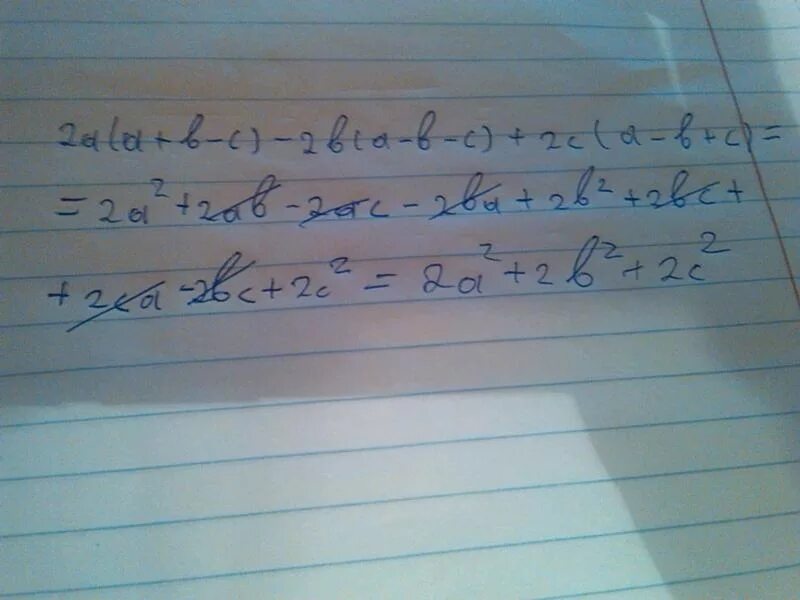 2a(a+b-c)-2b(a-b-c)+2c(a-b+c)=
=2a²+2ab-2ac-2ba+2b²+2bc+
+2ca-2bc+2c²=2a²+2b²+2c²